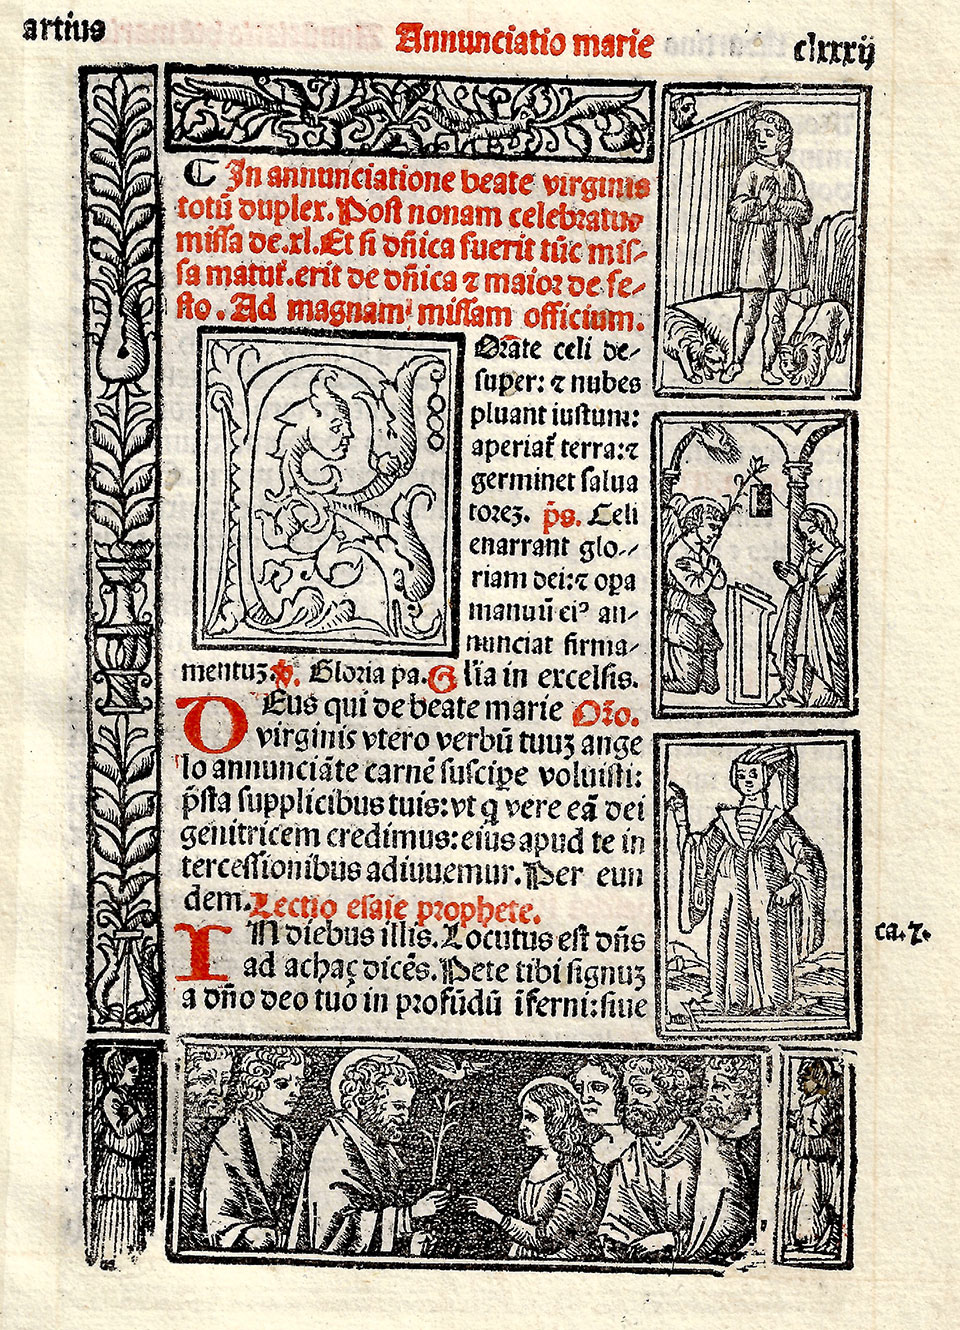 artius
Annunciatio marie
clxxxij
In annunciatione beate virginis
totū duplex. Post nonam celebratur
missa de .xl. Et si dn̄ica fuerit tūc mis-
sa matut᷑. erit de dn̄ica ⁊ maior de fe-
sto. Ad magnam missam officium.
ROrate celi de-
super: ⁊ nubes
pluant iustum:
aperiat᷑ terra: ⁊
germinet salua
torez. p̄s. Celi
enarrant glo-
riam dei: ⁊ opa
manuū eiꝰ an-
nunciat firma-
mentuz. ℣. Gloria pa. Gl̄ia in excelsis.
DEus qui de beate marie Or̄o.
virginis vtero verbū tuuz ange
lo annunciāte carnē suscipe voluisti:
p̄sta supplicibus tuis: vt q vere eā dei
genitricem credimus: eius apud te in
tercessionibus adiuuemur. Per eun
dem. Lectio esaie prophete.
IN diebus illis. Locutus est dn̄s
ad achaç dicēs. Pete tibi signuz
a dn̄o deo tuo in profūdū īferni: siue
ca. 7.